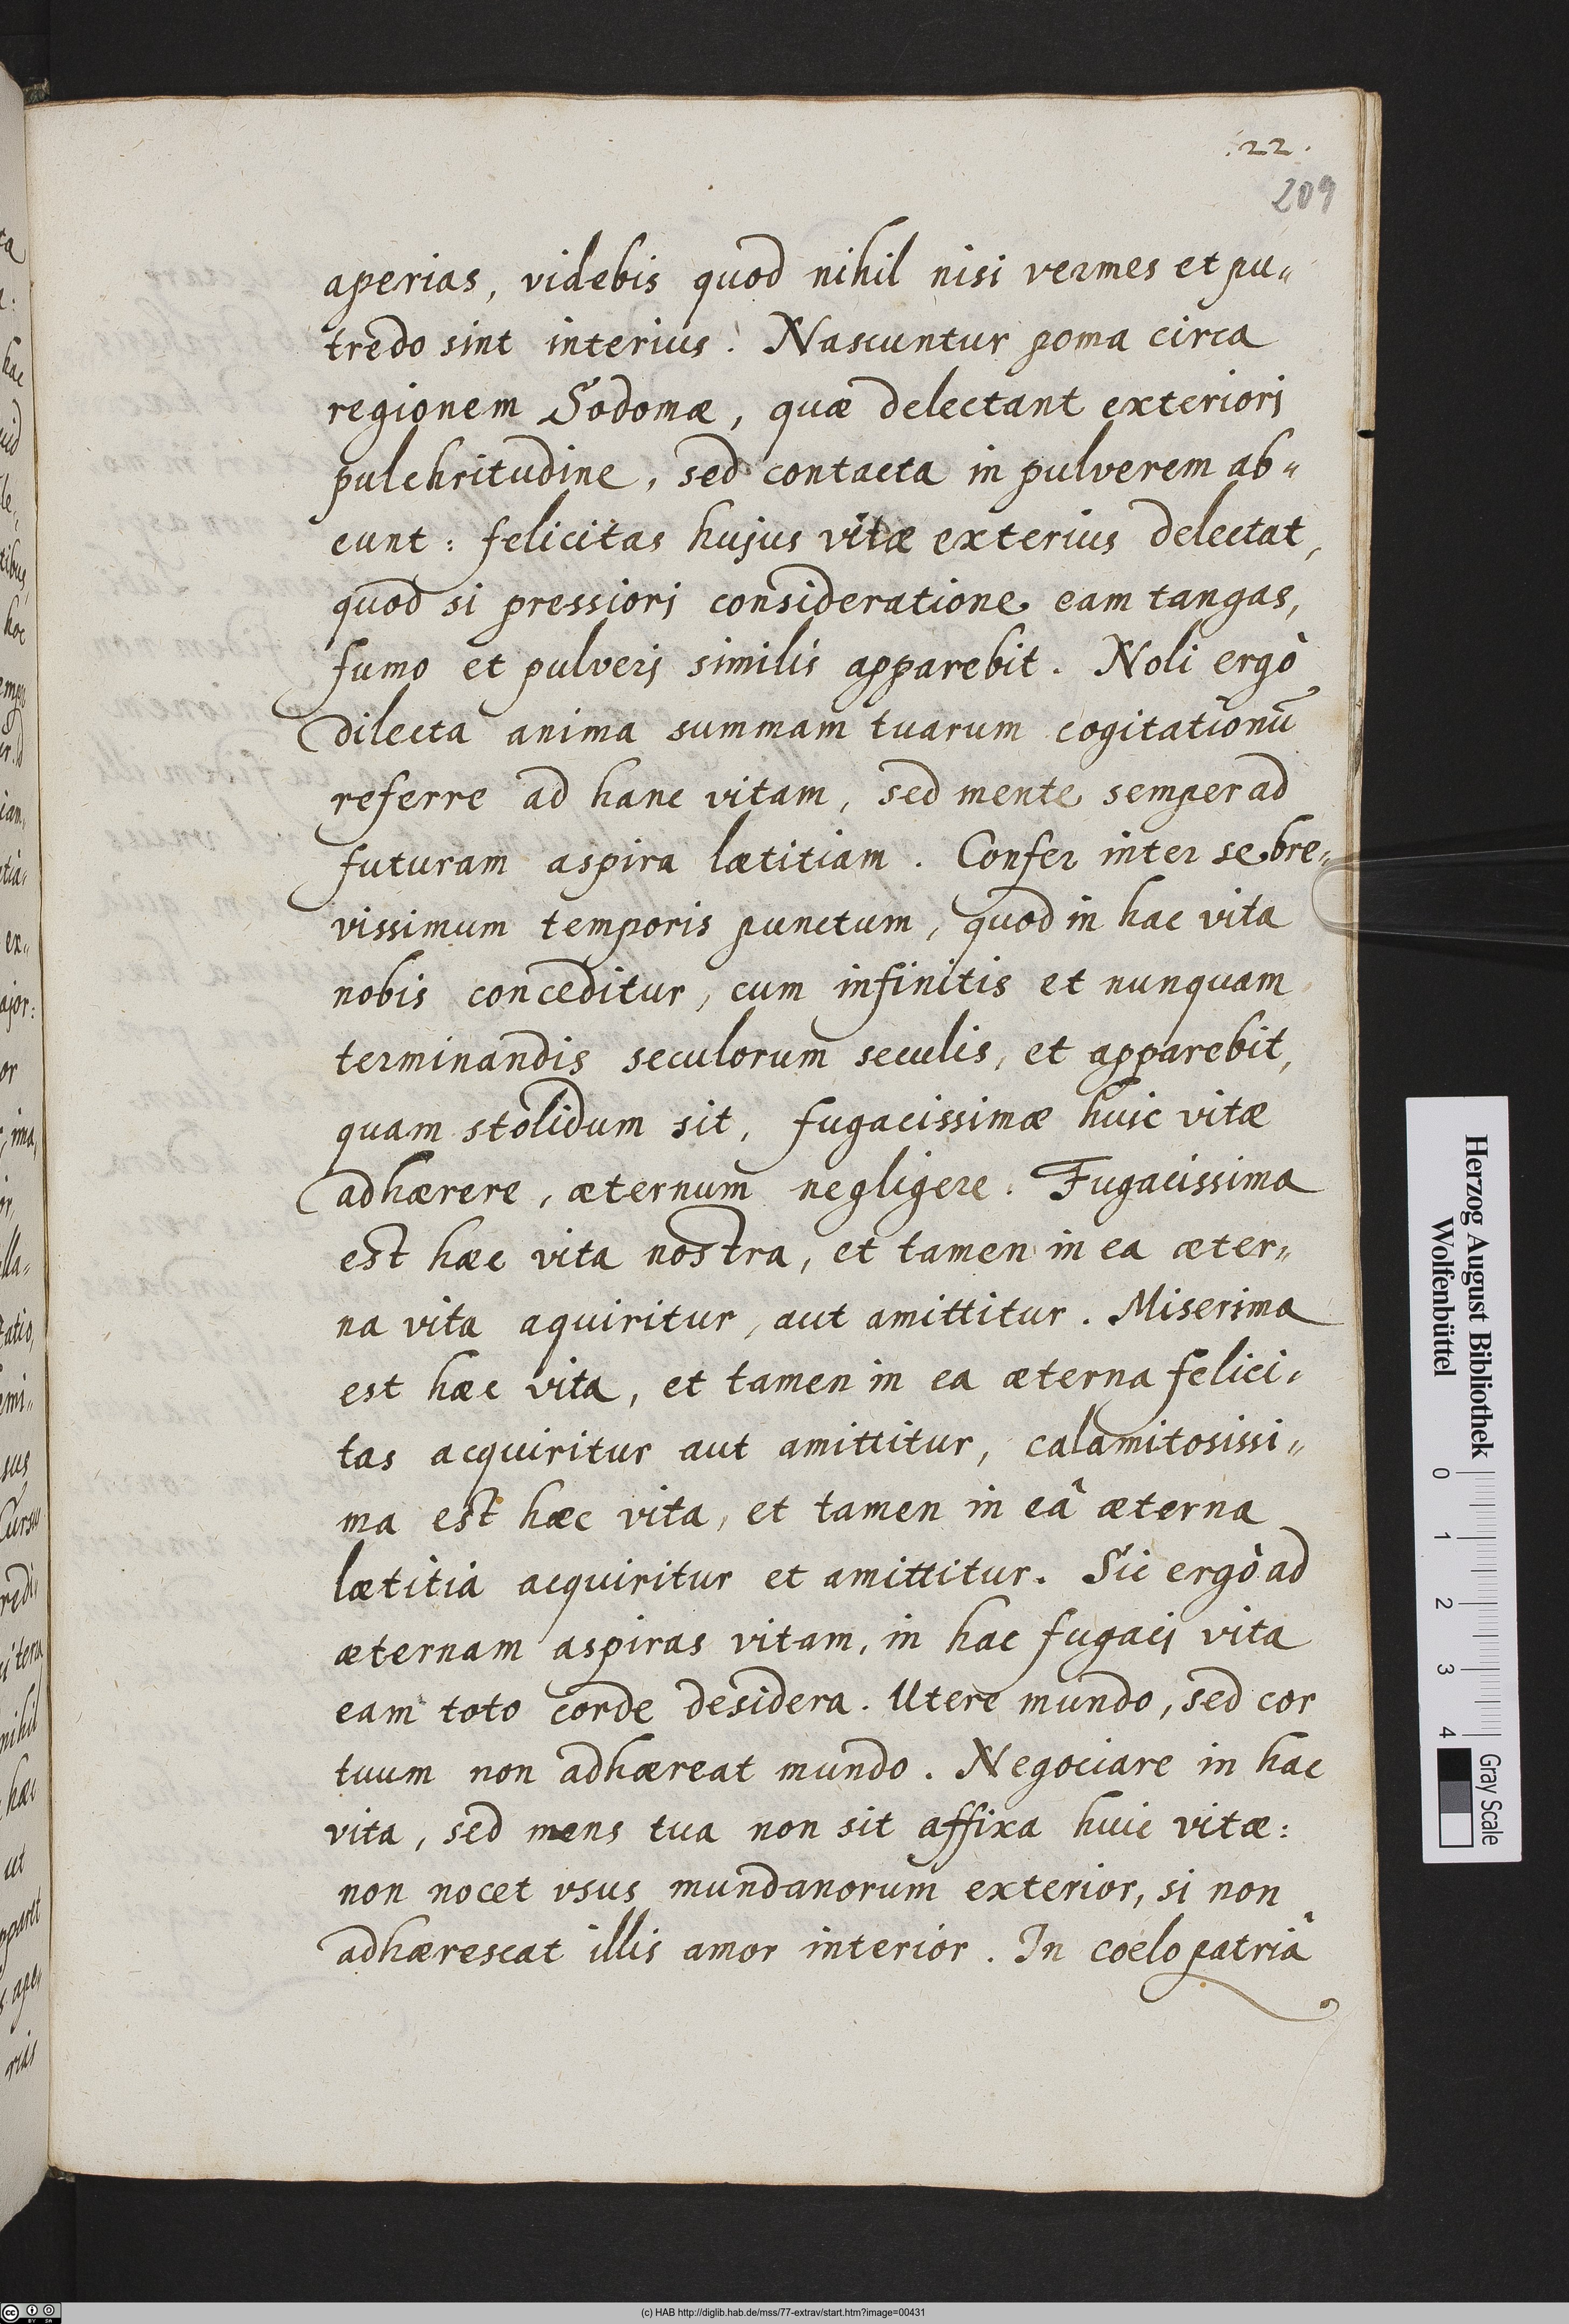 .22.
209
aperias, videbis quod nihil nisi vermes et pu„
tredo sint interius. Nascuntur poma circa
regionem Sodomæ, quæ delectant exteriori
pulchritudine, sed contacta in pulverem ab„
eunt: felicitas hujus vitæ exterius delectat,
quod si pressiori consideratione eam tangas,
fumo et pulveri similis apparebit. Noli ergò
dilecta anima summam tuarum cogitationū
referre ad hanc vitam, sed mente semper ad
futuram aspira lætitiam. Confer inter se bre„
vissimum temporis punctum, quod in hac vita
nobis conceditur, cum infinitis et nunquam
terminandis seculorum seculis, et apparebit,
quam stolidum sit, fugacissimæ huic vitæ
adhærere, æternum negligere. Fugacissima
est hæc vita nostra, et tamen in ea æter„
na vita aquiritur, aut amittitur. Miserima
est hæc vita, et tamen in ea æterna felici„
tas acquiritur aut amittitur, calamitosissi„
ma est hæc vita, et tamen in eâ æterna
lætitia acquiritur et amittitur. Sic ergò ad
æternam aspiras vitam, in hac fugaci vita
eam toto corde desidera. Utere mundo, sed cor
tuum non adhæreat mundo. Negociare in hac
vita, sed mens tua non sit affixa huic vitæ:
non nocet vsus mundanorum exterior, si non
adhærescat illis amor interior. In coelo patriâ
Herzog August Bibliothek
Wolfenbüttel
0 1 2 3 4
Gray Scale
(c) HAB http://diglib.hab.de/mss/77-extrav/start.htm?image=00431